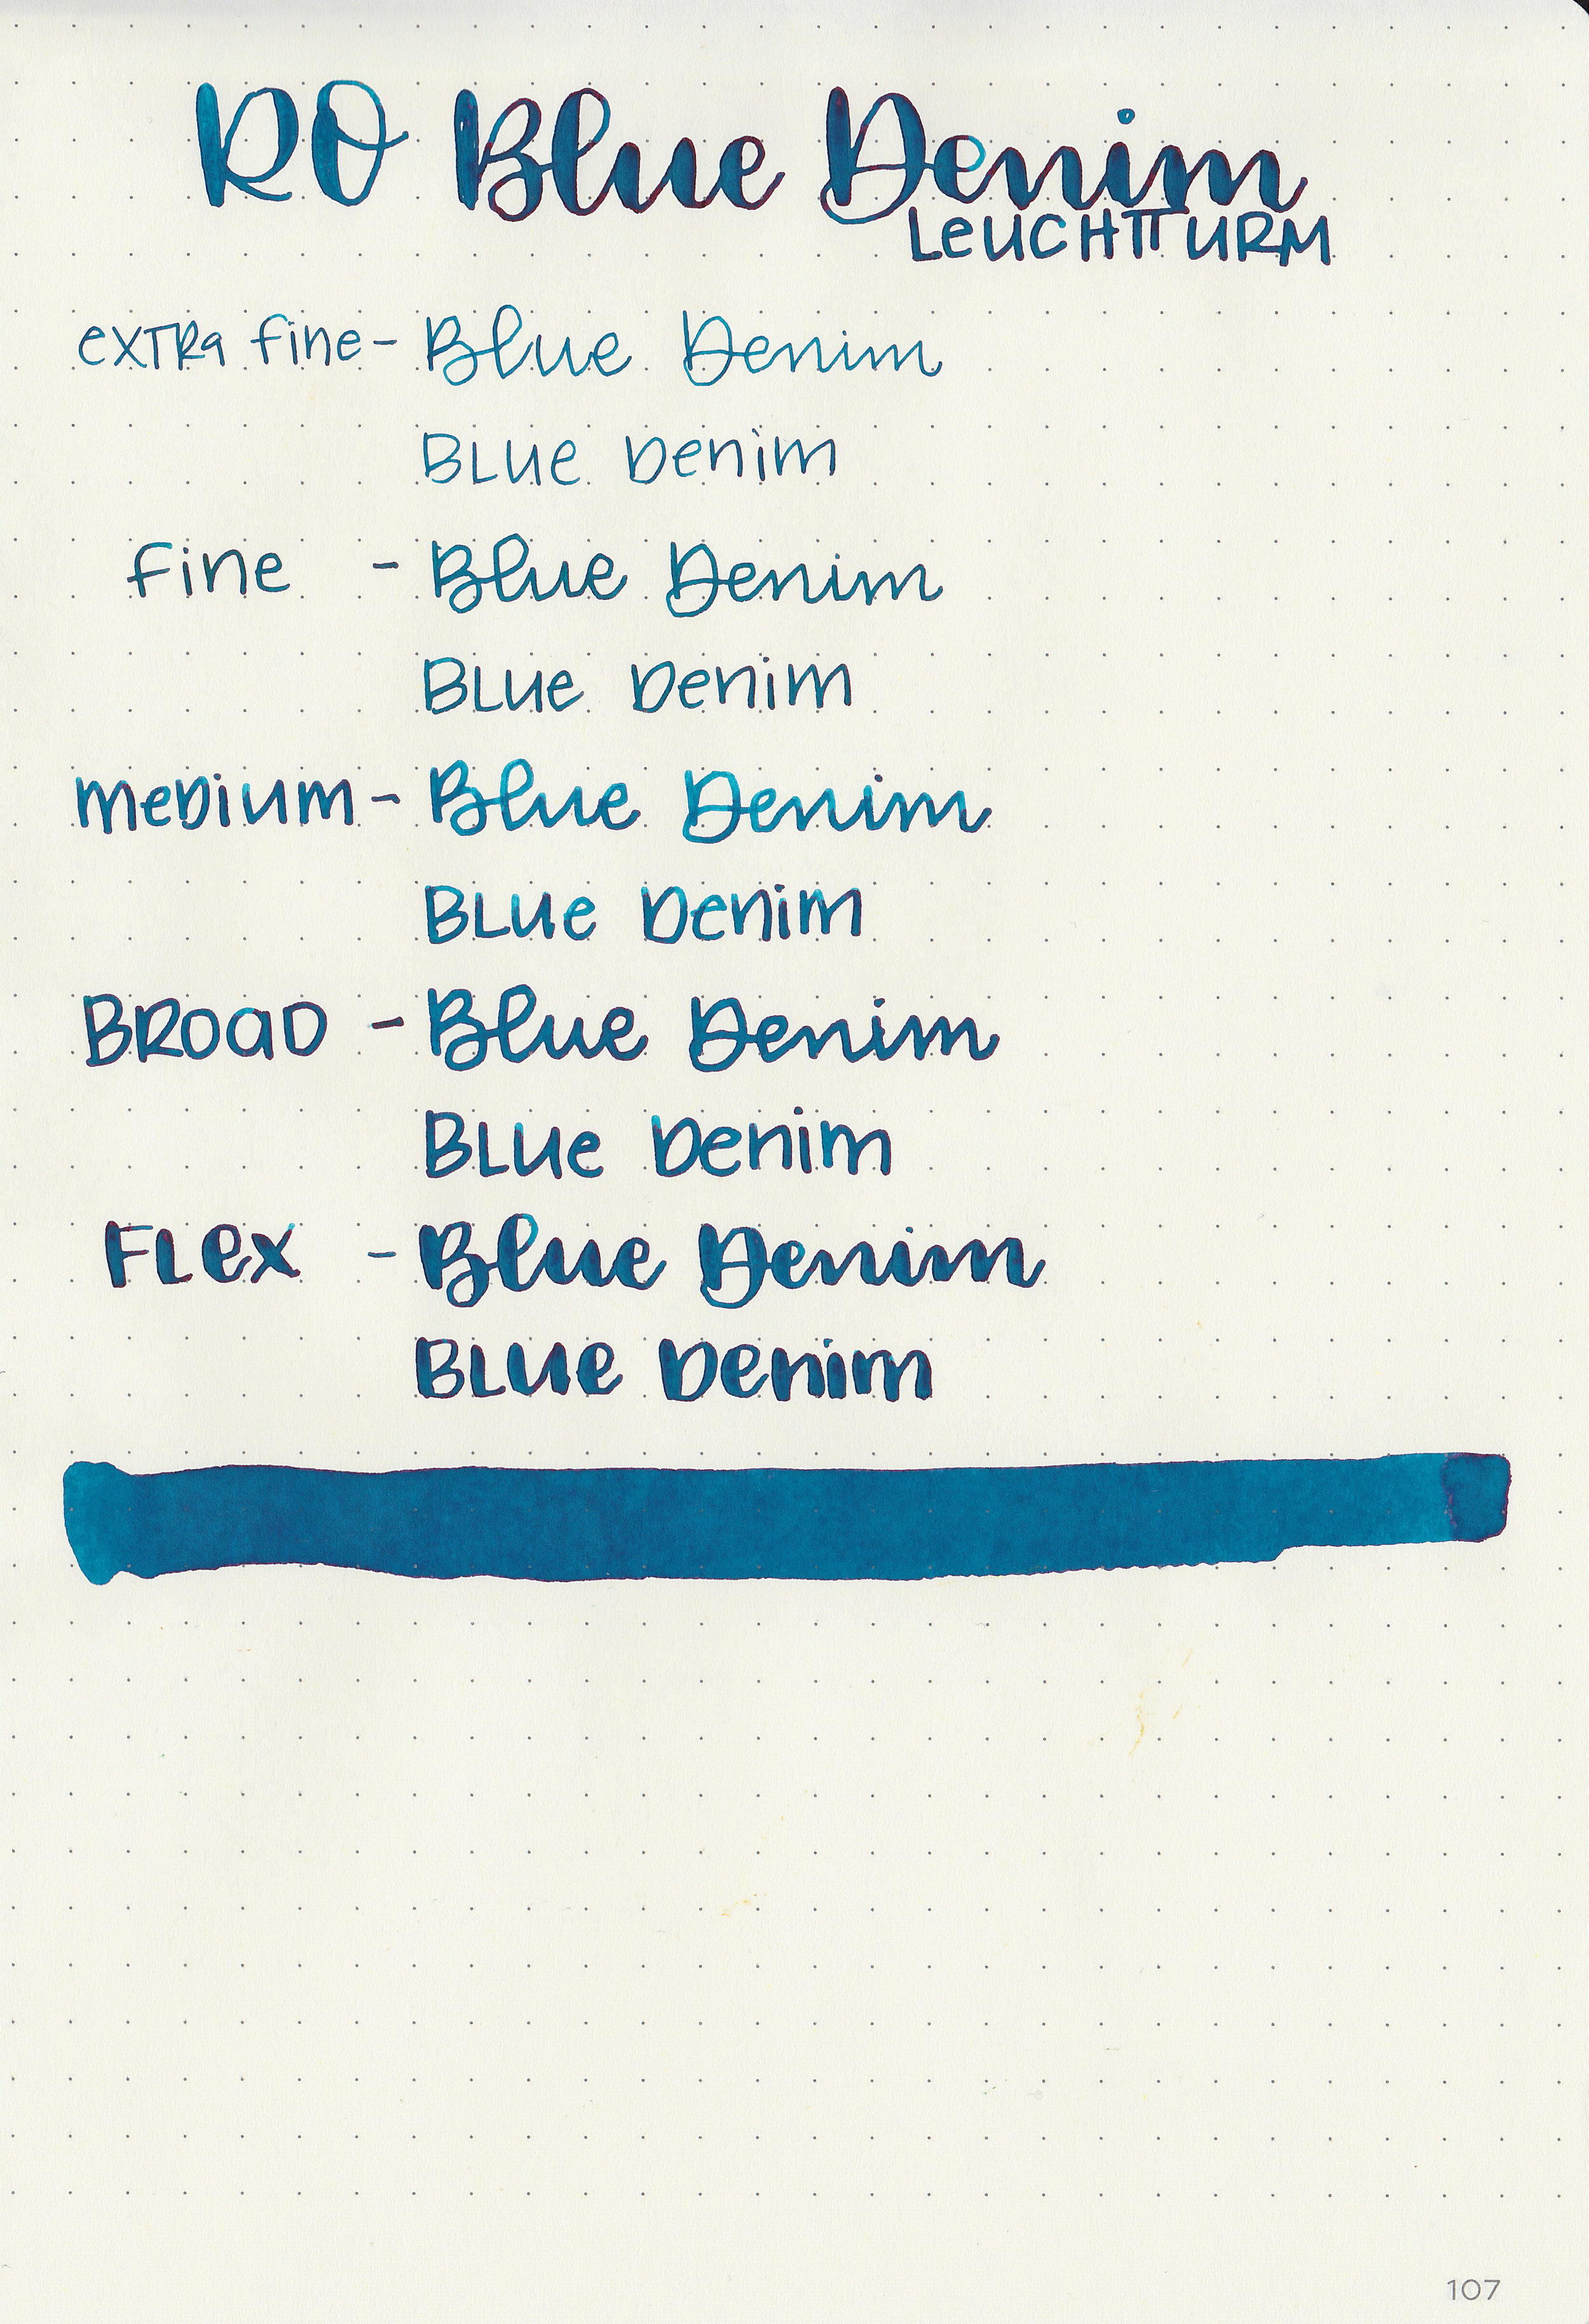 RO Blue Denim
LEUCHTTURM
extra fine - Blue Denim
Blue Denim
fine - Blue Denim
Blue Denim
medium - Blue Denim
Blue Denim
Broad - Blue Denim
Blue Denim
Flex - Blue Denim
Blue Denim
107